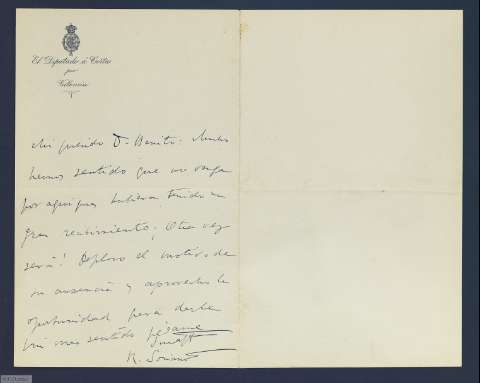 El Diputado á Cortes
por
Valencia
Mi querido D. Benito: Mucho
hemos sentido que no venga
por aqui pues hubiera tenido un
gran recibimiento; Otra vez
será! Deploro el motivo de
su ausencia y aprovecho la
oportunidad para darle
mi mas sentido pésame
R. Soriano